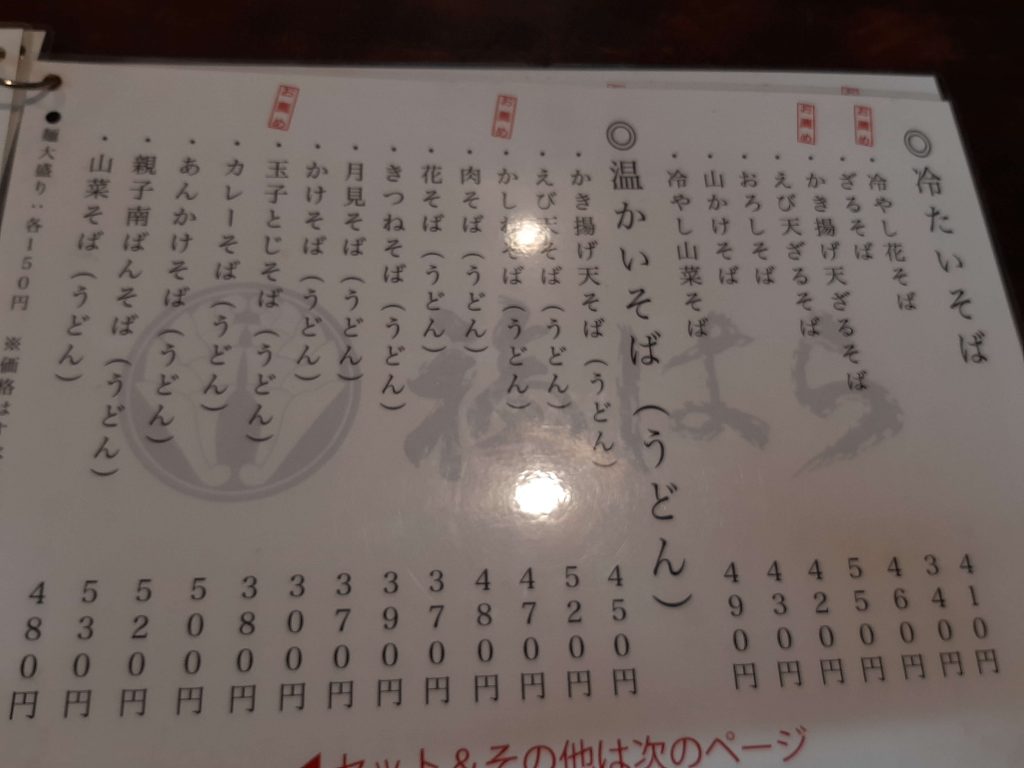 ◎冷たいそば
・冷やし花そば 410円
お薦め
・ざるそば 340円
お薦め
・かき揚げ天ざるそば 460円
・えび天ざるそば 550円
・おろしそば 420円
・山かけそば 430円
・冷やし山菜そば 490円
◎温かいそば(うどん)
・かき揚げ天そば(うどん) 450円
・えび天そば(うどん) 520円
お薦め
・かしわそば(うどん) 470円
・肉そば(うどん) 480円
・花そば(うどん) 370円
・きつねそば(うどん) 390円
・月見そば(うどん) 370円
・かけそば(うどん) 300円
お薦め
・玉子とじそば(うどん) 380円
・カレーそば(うどん) 500円
・あんかけそば(うどん) 520円
・親子南ばんそば(うどん) 530円
・山菜そば(うどん) 480円
●麺大盛り:各150円
※価格はす
福はら
◀セット&その他は次のページ